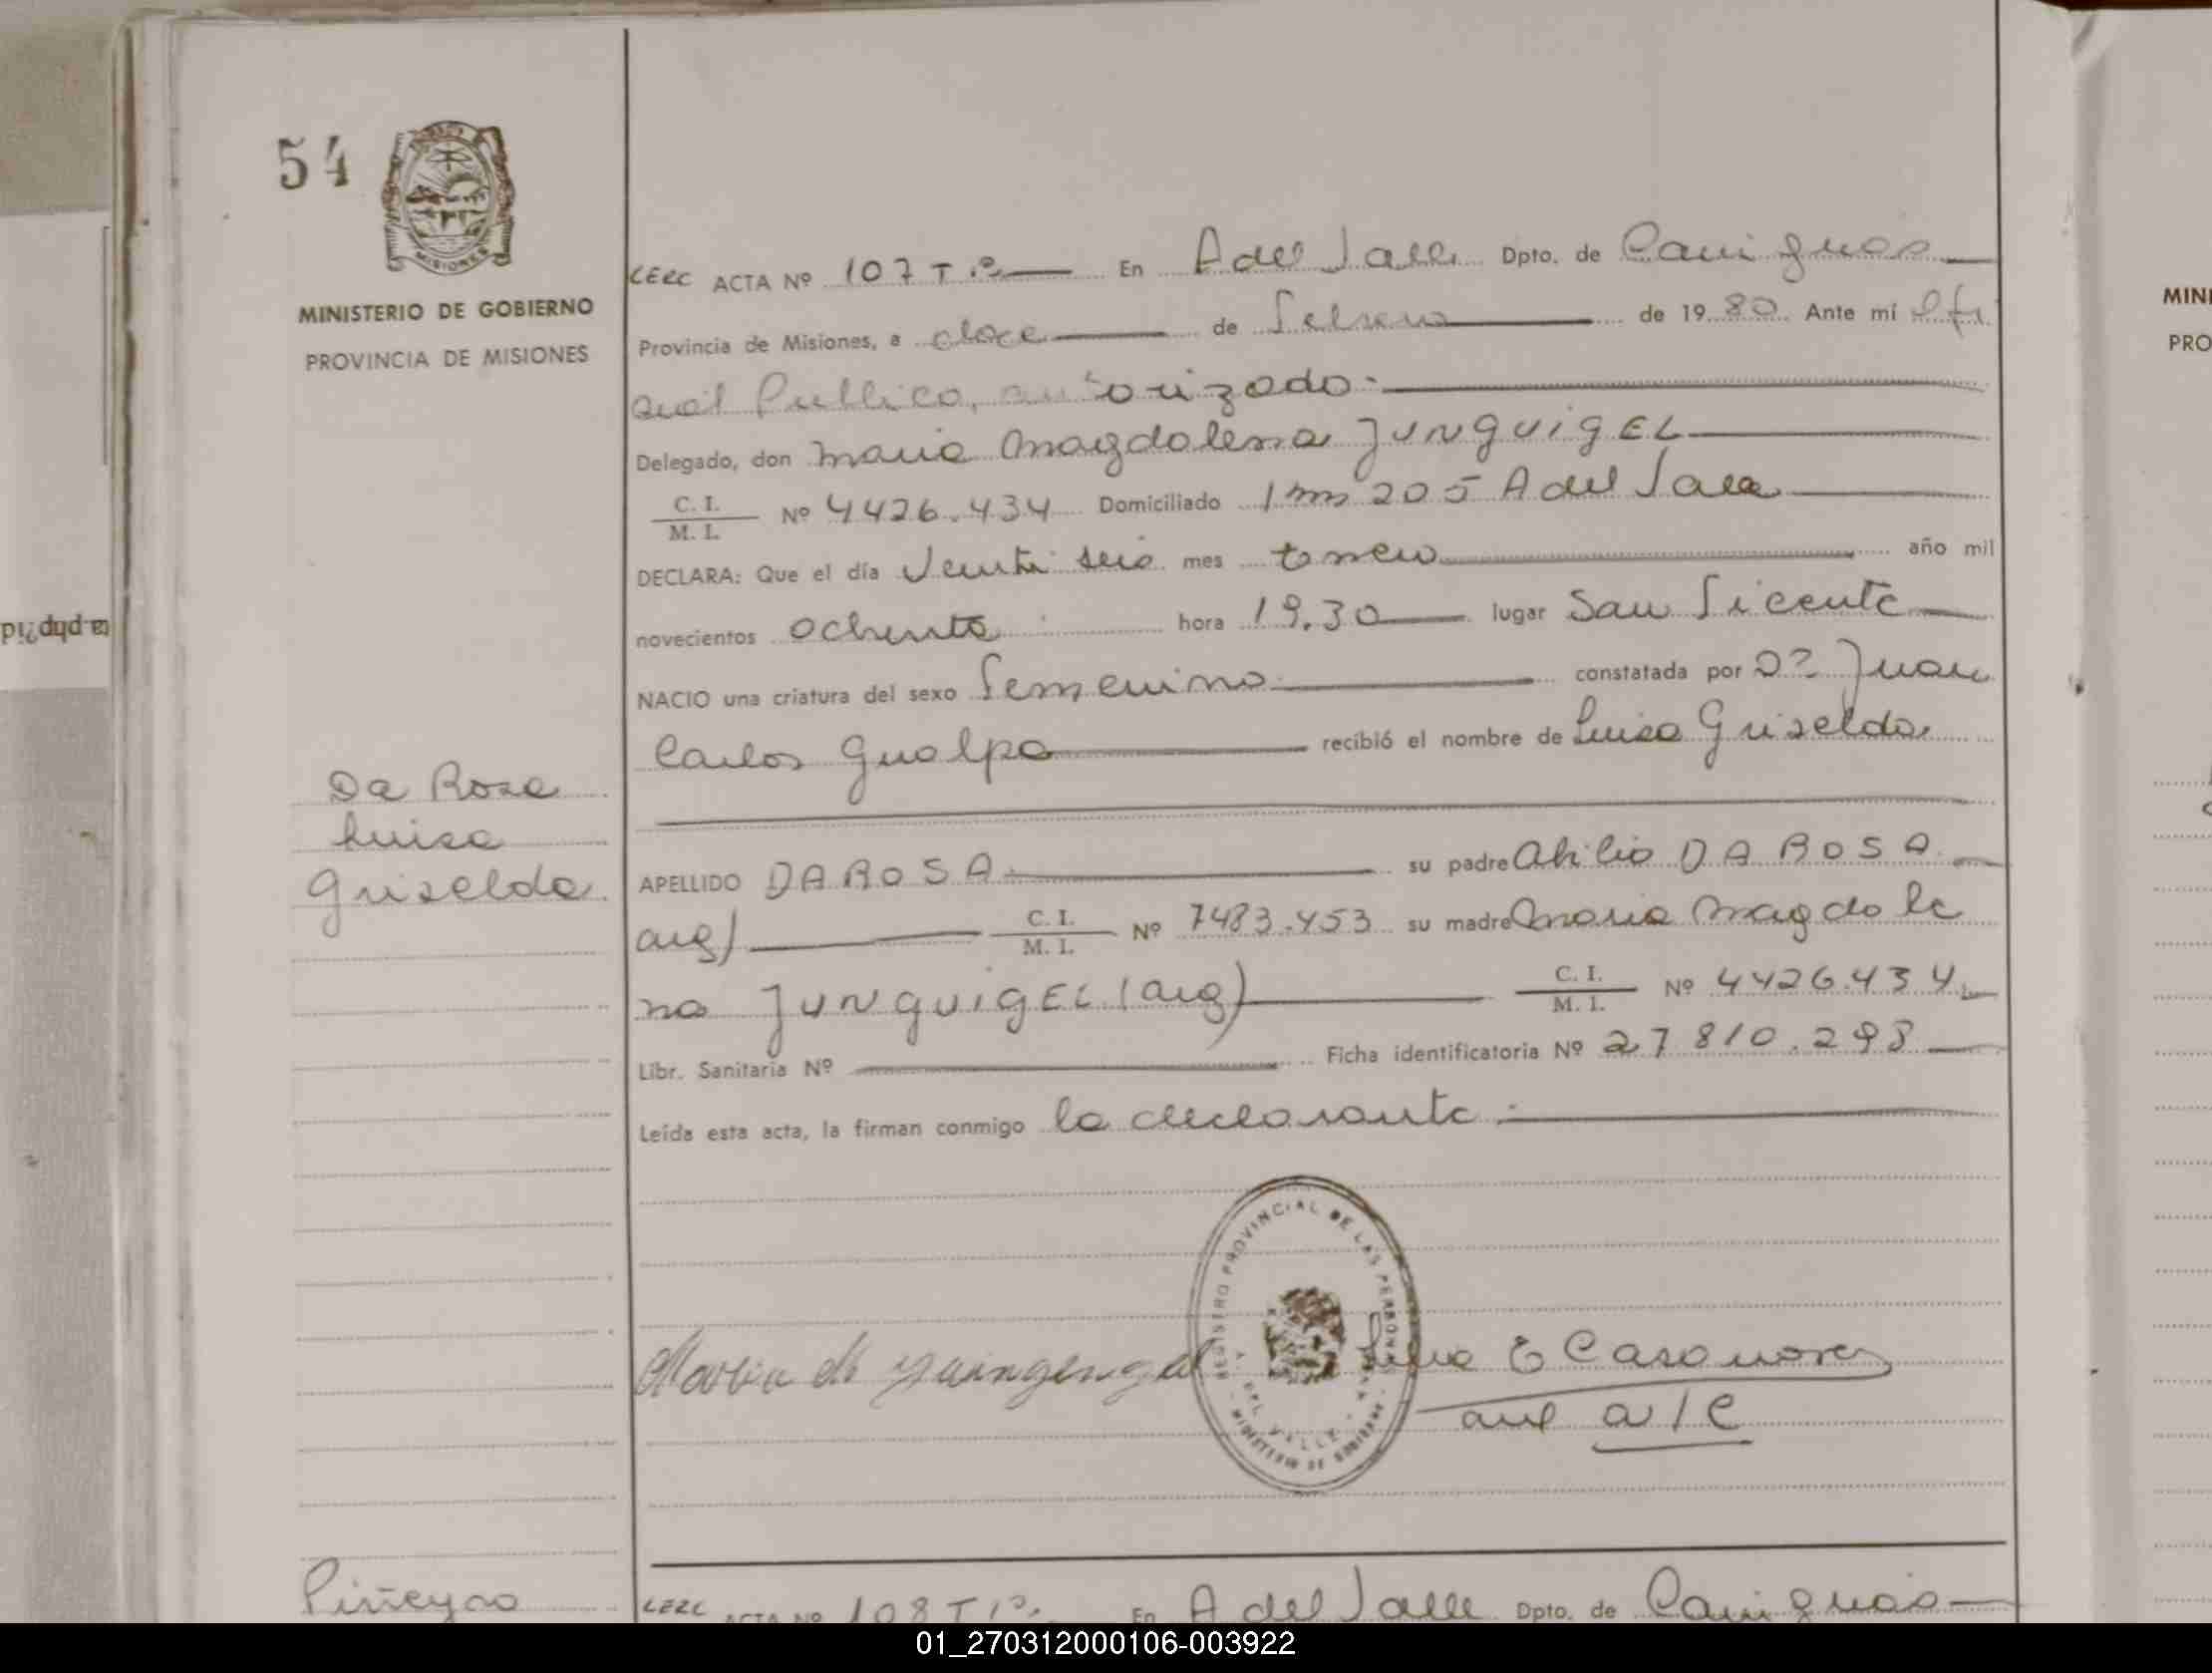 54
MISIONES
MINISTERIO DE GOBIERNO
PROVINCIA DE MISIONES
CERC ACTA Nº 107 T 1º En A del Valle Dpto. de Cainguas
Provincia de Misiones, a doce de Febrero de 1980 Ante mí Ofi
cial Publico, autorizado.
Delegado, don Maria Magdalena JUNGUIGEL
C. I. / M. I. Nº 4426.434 Domiciliado Km 205 A del Valle
DECLARA: Que el día Veinti seis mes enero año mil
novecientos ochenta hora 19.30 lugar San Vicente
NACIO una criatura del sexo Femenino constatada por Dº Juan
Carlos Gualpa recibió el nombre de Luisa Griselda
Da Rosa
Luisa
Griselda
APELLIDO DA ROSA su padre Abilio DA ROSA
arg) C. I. / M. I. Nº 7483.453 su madre Maria Magdale
na JUNGUIGEL (arg) C. I. / M. I. Nº 4426.434
Libr. Sanitaria Nº Ficha identificatoria Nº 27810.293
Leída esta acta, la firman conmigo la declarante
REGISTRO PROVINCIAL DE LAS PERSONAS
DEL VALLE
MINISTERIO DE GOBIERNO
Maria
E Casanova
aux a/c
Piñeyro
CERC ACTA Nº 108 T 1º. En A del Valle Dpto. de Cainguás
MINI
PRO
01_270312000106-003922